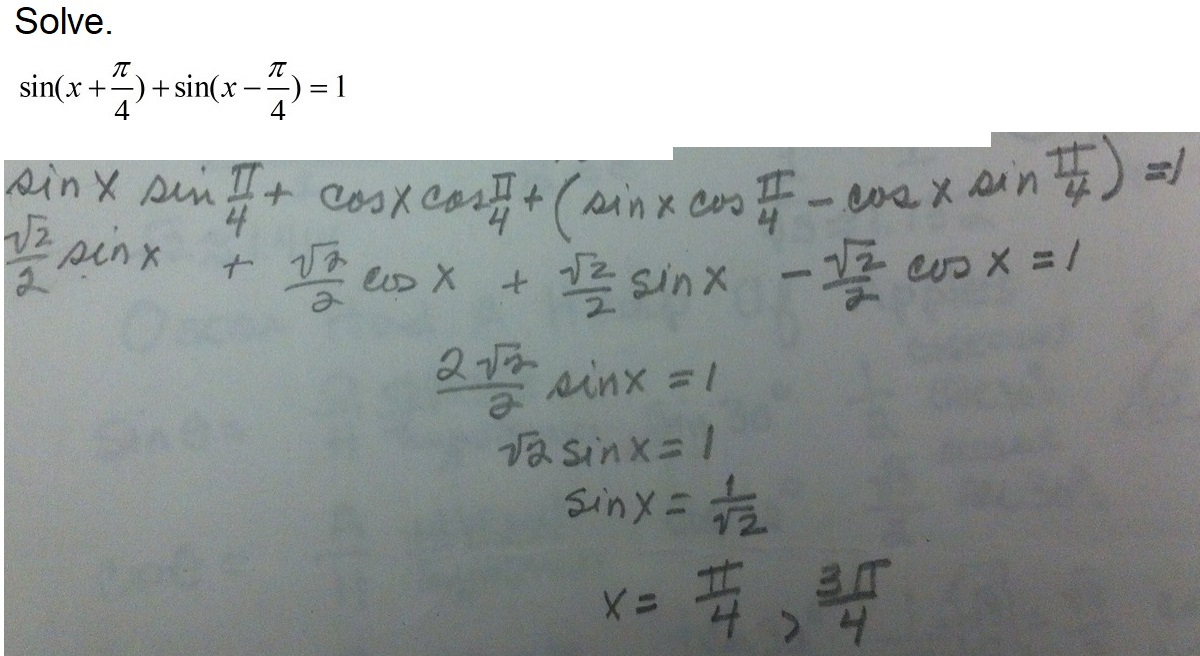 Solve.
sin(x + π/4) + sin(x − π/4) = 1
sin x sin π/4 + cos x cos π/4 + (sin x cos π/4 − cos x sin π/4) = 1
√2/2 sin x + √2/2 cos x + √2/2 sin x − √2/2 cos x = 1
2√2/2 sin x = 1
√2 sin x = 1
sin x = 1/√2
x = π/4 , 3π/4